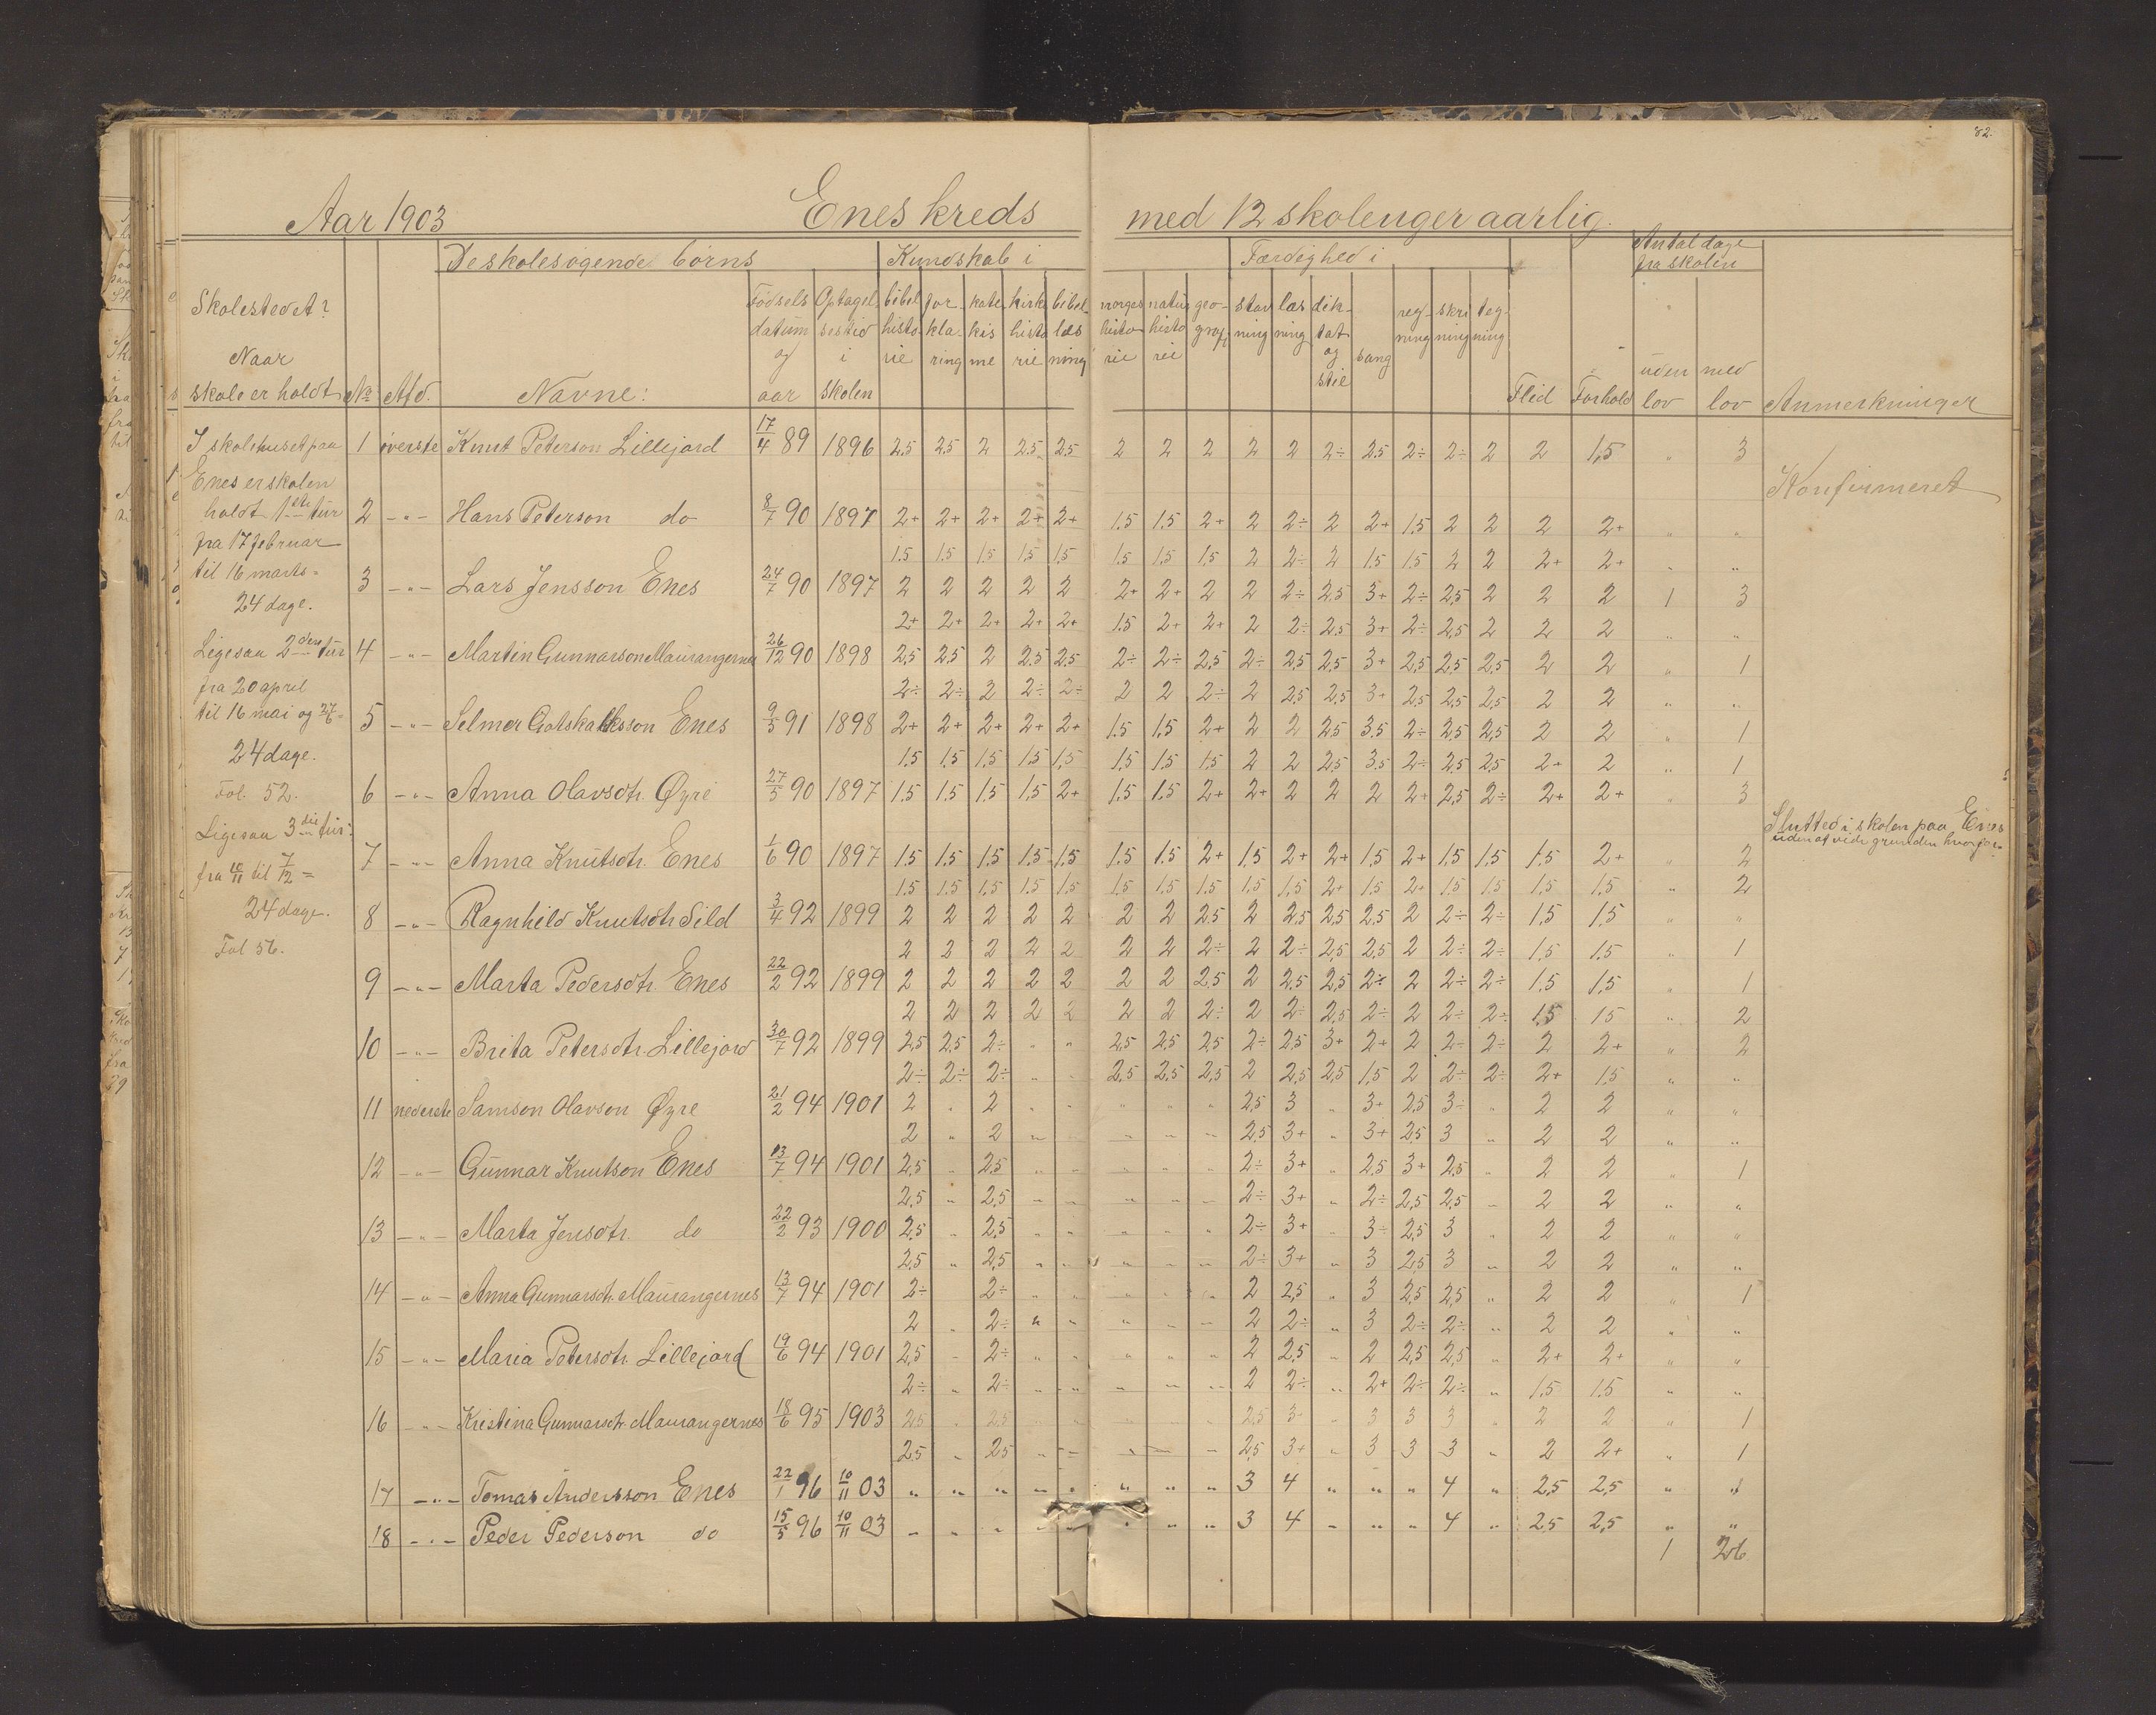 82.
Aar 1903 Enes kreds med 12 skoleuger aarlig.
De skolesøgende børns Kundskab i Færdighed i Antal dage fra skolen
Skolestedet?
Naar
skole er holdt
No Afd. Navne: Fødselsdatum og aar Optagelsestid i skolen bibelhistorie forklaring katekisme kirkehistorie bibellæsning norgeshistorie naturhistorie geografi stavning læsning diktat og stil sang regning skrivning tegning Flid Forhold uden lov med lov Anmerkninger
I skolehuset paa
Enes er skolen
holdt 1ste tur
fra 17 februar
til 16 marts =
24 dage.
Ligesaa 2den tur
fra 20 april
til 16 mai og 27/6 =
24 dage.
Fol. 52.
Ligesaa 3die tur:
fra 10/11 til 7/12 =
24 dage.
Fol 56.
1 øverste Knut Peterson Lillejord 17/4 89 1896 2,5 2,5 2 2,5 2,5 2 2 2 2 2 2÷ 2,5 2÷ 2÷ 2 2 1,5 " 3
Konfirmeret
2 -"- Hans Peterson do 8/7 90 1897 2+ 2+ 2+ 2+ 2+ 1,5 1,5 2+ 2 2÷ 2 2+ 1,5 2 2 2 2+ " "
1,5 1,5 1,5 1,5 1,5 1,5 1,5 1,5 2 2÷ 2 1,5 1,5 2 2 2+ 2+ " "
3 -"- Lars Jensson Enes 24/7 90 1897 2 2 2 2 2 2+ 2+ 2 2 2÷ 2,5 3+ 2÷ 2,5 2 2 2 1 3
2+ 2+ 2+ 2+ 2+ 1,5 2+ 2+ 2 2÷ 2,5 3+ 2÷ 2,5 2 2 2 " "
4 -"- Martin Gunnarson Maurangernes 26/12 90 1898 2,5 2,5 2 2,5 2,5 2÷ 2÷ 2,5 2÷ 2,5 2,5 3+ 2,5 2,5 2,5 2 2 " 1
2÷ 2÷ 2 2÷ 2÷ 2 2 2÷ 2 2,5 2,5 3+ 2,5 2,5 2,5 2 2 " "
5 -"- Selmer Gotskalksson Enes 9/5 91 1898 2+ 2+ 2+ 2+ 2+ 1,5 1,5 2+ 2 2 2,5 3,5 2÷ 2,5 2,5 2 2 " 1
1,5 1,5 1,5 1,5 1,5 1,5 1,5 1,5 2 2 2,5 3,5 2÷ 2,5 2,5 2+ 2 " 1
6 -"- Anna Olavsdtr. Øyre 27/5 90 1897 1,5 1,5 1,5 1,5 2+ 1,5 1,5 2+ 2+ 2 2 2 2+ 2,5 2÷ 2+ 2+ " 3
Slutted i skolen paa Enes
uden at vide grunden hvorfor.
7 -"- Anna Knutsdtr. Enes 1/6 90 1897 1,5 1,5 1,5 1,5 1,5 1,5 1,5 2+ 1,5 2+ 2+ 1,5 2+ 1,5 1,5 1,5 2+ " 2
1,5 1,5 1,5 1,5 1,5 1,5 1,5 1,5 1,5 1,5 2+ 1,5 2+ 1,5 1,5 1,5 1,5 " 2
8 -"- Ragnhild Knutsdtr Sild 3/4 92 1899 2 2 2 2 2 2 2 2,5 2 2,5 2,5 2,5 2 2÷ 2÷ 1,5 1,5 " "
2 2 2 2 2 2 2 2÷ 2 2÷ 2,5 2,5 2 2÷ 2÷ 1,5 1,5 " 1
9 -"- Marta Pedersdtr. Enes 22/2 92 1899 2 2 2 2 2 2 2 2,5 2 2,5 2,5 2÷ 2 2÷ 2÷ 1,5 1,5 " 1
2 2 2 2 2 2 2 2÷ 2 2÷ 2,5 2÷ 2 2÷ 2÷ 1,5 1,5 " 2
10 -"- Brita Petersdtr. Lillejord 30/7 92 1899 2,5 2,5 2÷ " " 2,5 2,5 2,5 2÷ 2,5 3+ 2+ 2 2÷ 2÷ 2 2+ " 2
2÷ 2÷ 2÷ " " 2,5 2,5 2,5 2 2,5 2,5 1,5 2 2÷ 2÷ 2+ 1,5 " "
11 nederste Samson Olavson Øyre 21/2 94 1901 2 " 2 " " " " " 2,5 3 " 3+ 2,5 3÷ " 2 2 " "
2 " 2 " " " " " 2,5 3+ " 3+ 2,5 3 " 2 2 " "
12 -"- Gunnar Knutson Enes 13/7 94 1901 2,5 " 2,5 " " " " " 2÷ 3+ " 2,5 3+ 2,5 " 2 2 " 1
2,5 " 2,5 " " " " " 2÷ 3+ " 2÷ 2,5 2,5 " 2 2 " "
13 -"- Marta Jensdtr. do 22/2 93 1900 2,5 " 2,5 " " " " " 2÷ 3+ " 3÷ 2,5 3 " 2 2 " "
2,5 " 2,5 " " " " " 2÷ 3+ " 3 2,5 3 " 2 2 " "
14 -"- Anna Gunnarsdtr. Maurangernes 13/7 94 1901 2÷ " 2÷ " " " " " 2 2,5 " 3 2,5 2,5 " 2 2 " 1
2 " 2÷ " " " " " 2 2÷ " 3 2÷ 2÷ " 2 2 " "
15 -"- Maria Petersdtr. Lillejord 19/6 94 1901 2,5 " 2÷ " " " " " 2 2,5 " 2 2,5 2,5 " 2+ 2+ " "
2÷ " 2÷ " " " " " 2 2÷ " 2+ 2÷ 2÷ " 1,5 1,5 " "
16 -"- Kristina Gunnarsdtr. Maurangernes 18/6 95 1903 2,5 " 2,5 " " " " " 2,5 3 " 3 3 3 " 2 2 " 1
2,5 " 2,5 " " " " " 2,5 3+ " 3 3 3 " 2 2+ " 1
17 -"- Tomas Andersson Enes 22/1 96 10/11 03 " " " " " " " " 3 4 " " " 4 " 2,5 2,5 " "
18 -"- Peder Pederson do 15/5 96 10/11 03 " " " " " " " " 3 4 " " " 4 " 2,5 2,5 " "
1 26